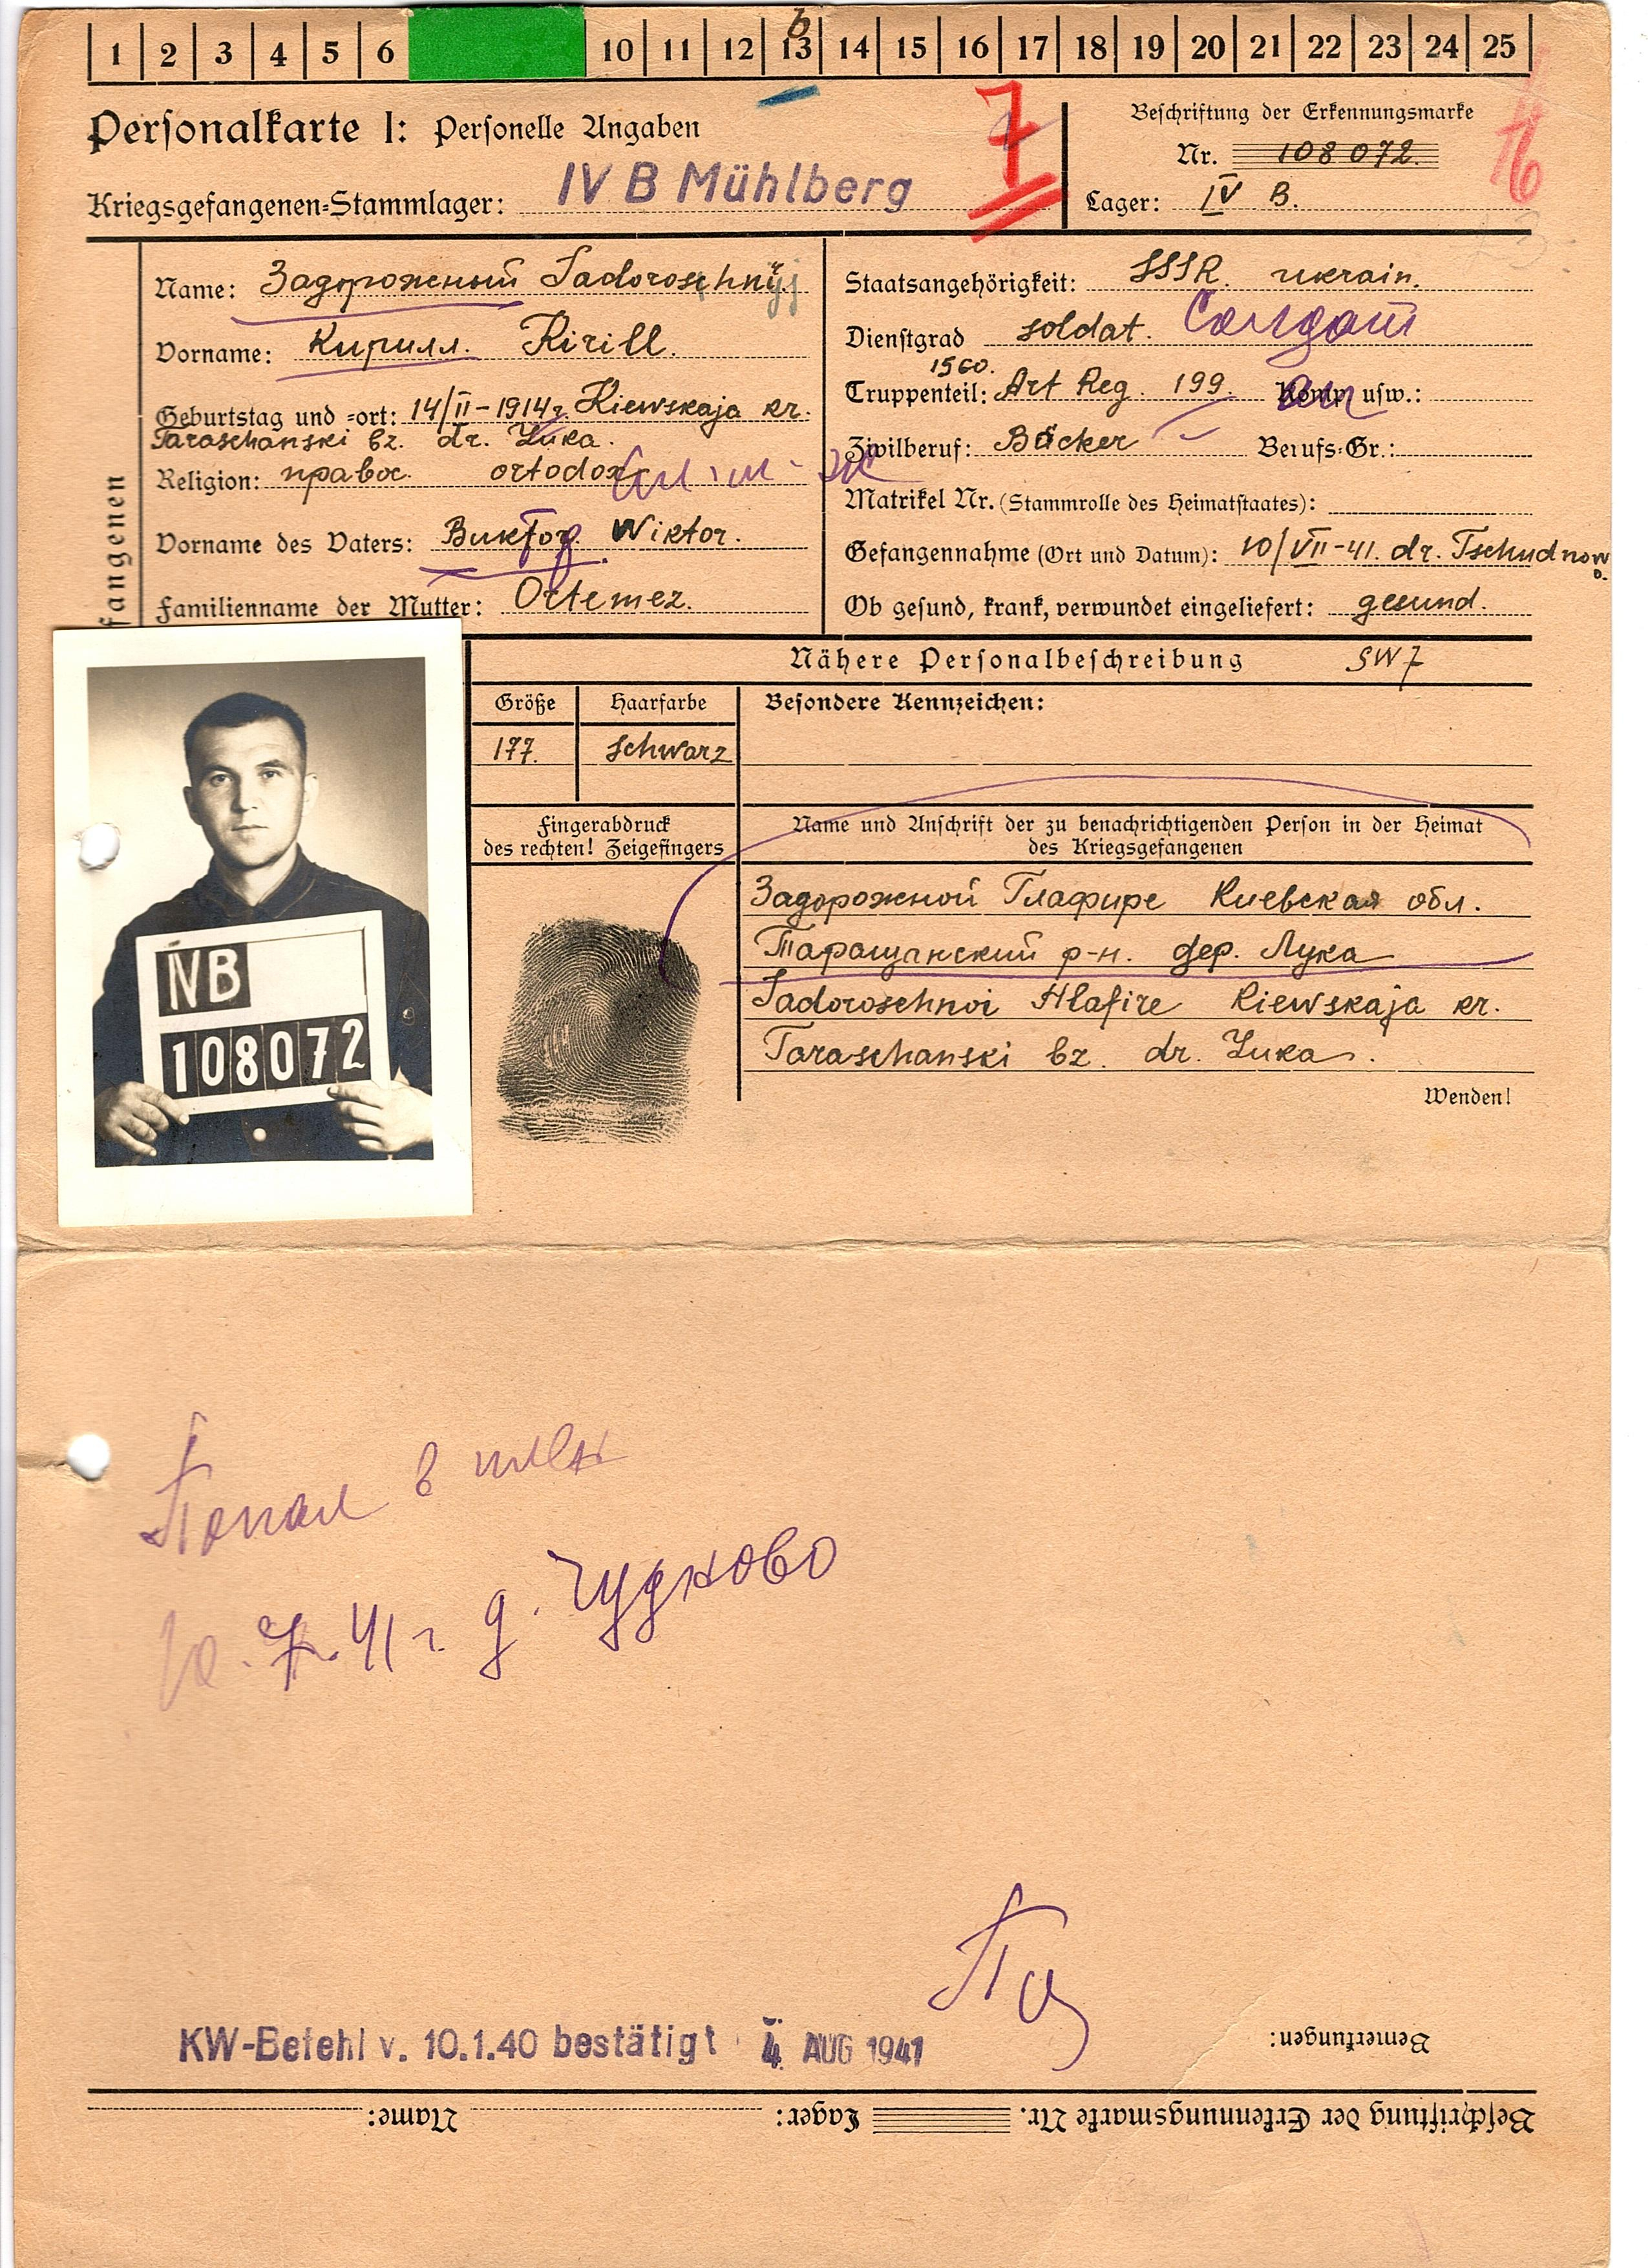 1 2 3 4 5 6 10 11 12 13 14 15 16 17 18 19 20 21 22 23 24 25
Personalkarte I: Personelle Angaben
7
Beschriftung der Erkennungsmarke
Nr. 108072.
Kriegsgefangenen-Stammlager: IV B Mühlberg
Lager: IV B.
Name: Задорожный Sadoroschnyj
Vorname: Кирилл. Kirill.
Geburtstag und -ort: 14/II-1914г. Kiewskaja kr.
Taraschanski bz. dr. Luka.
Religion: правос. ortodox
Vorname des Vaters: Виктор. Wiktor.
Familienname der Mutter: Ortemez.
fangenen
Staatsangehörigkeit: SSSR. ukrain.
Dienstgrad soldat. Солдат
1560.
Truppenteil: Art Reg. 199. Komp. usw.:
Zivilberuf: Bäcker Berufs-Gr.:
Matrikel Nr. (Stammrolle des Heimatstaates):
Gefangennahme (Ort und Datum): 10/VII-41. dr. Tschudnowo.
Ob gesund, krank, verwundet eingeliefert: gesund.
Nähere Personalbeschreibung SW7
Größe Haarfarbe Besondere Kennzeichen:
177. schwarz
Fingerabdruck
des rechten! Zeigefingers
Name und Anschrift der zu benachrichtigenden Person in der Heimat
des Kriegsgefangenen
Задорожной Глафире Киевская обл.
Таращанский р-н. дер. Лука
Sadoroschnoi Hlafire Kiewskaja kr.
Taraschanski bz. dr. Luka.
Wenden!
IVB
108072
Попал в плен
10.7.41 г. д. Чудново
KW-Befehl v. 10.1.40 bestätigt 4. AUG 1941
Bemerkungen:
Beschriftung der Erkennungsmarke Nr. Lager: Name: